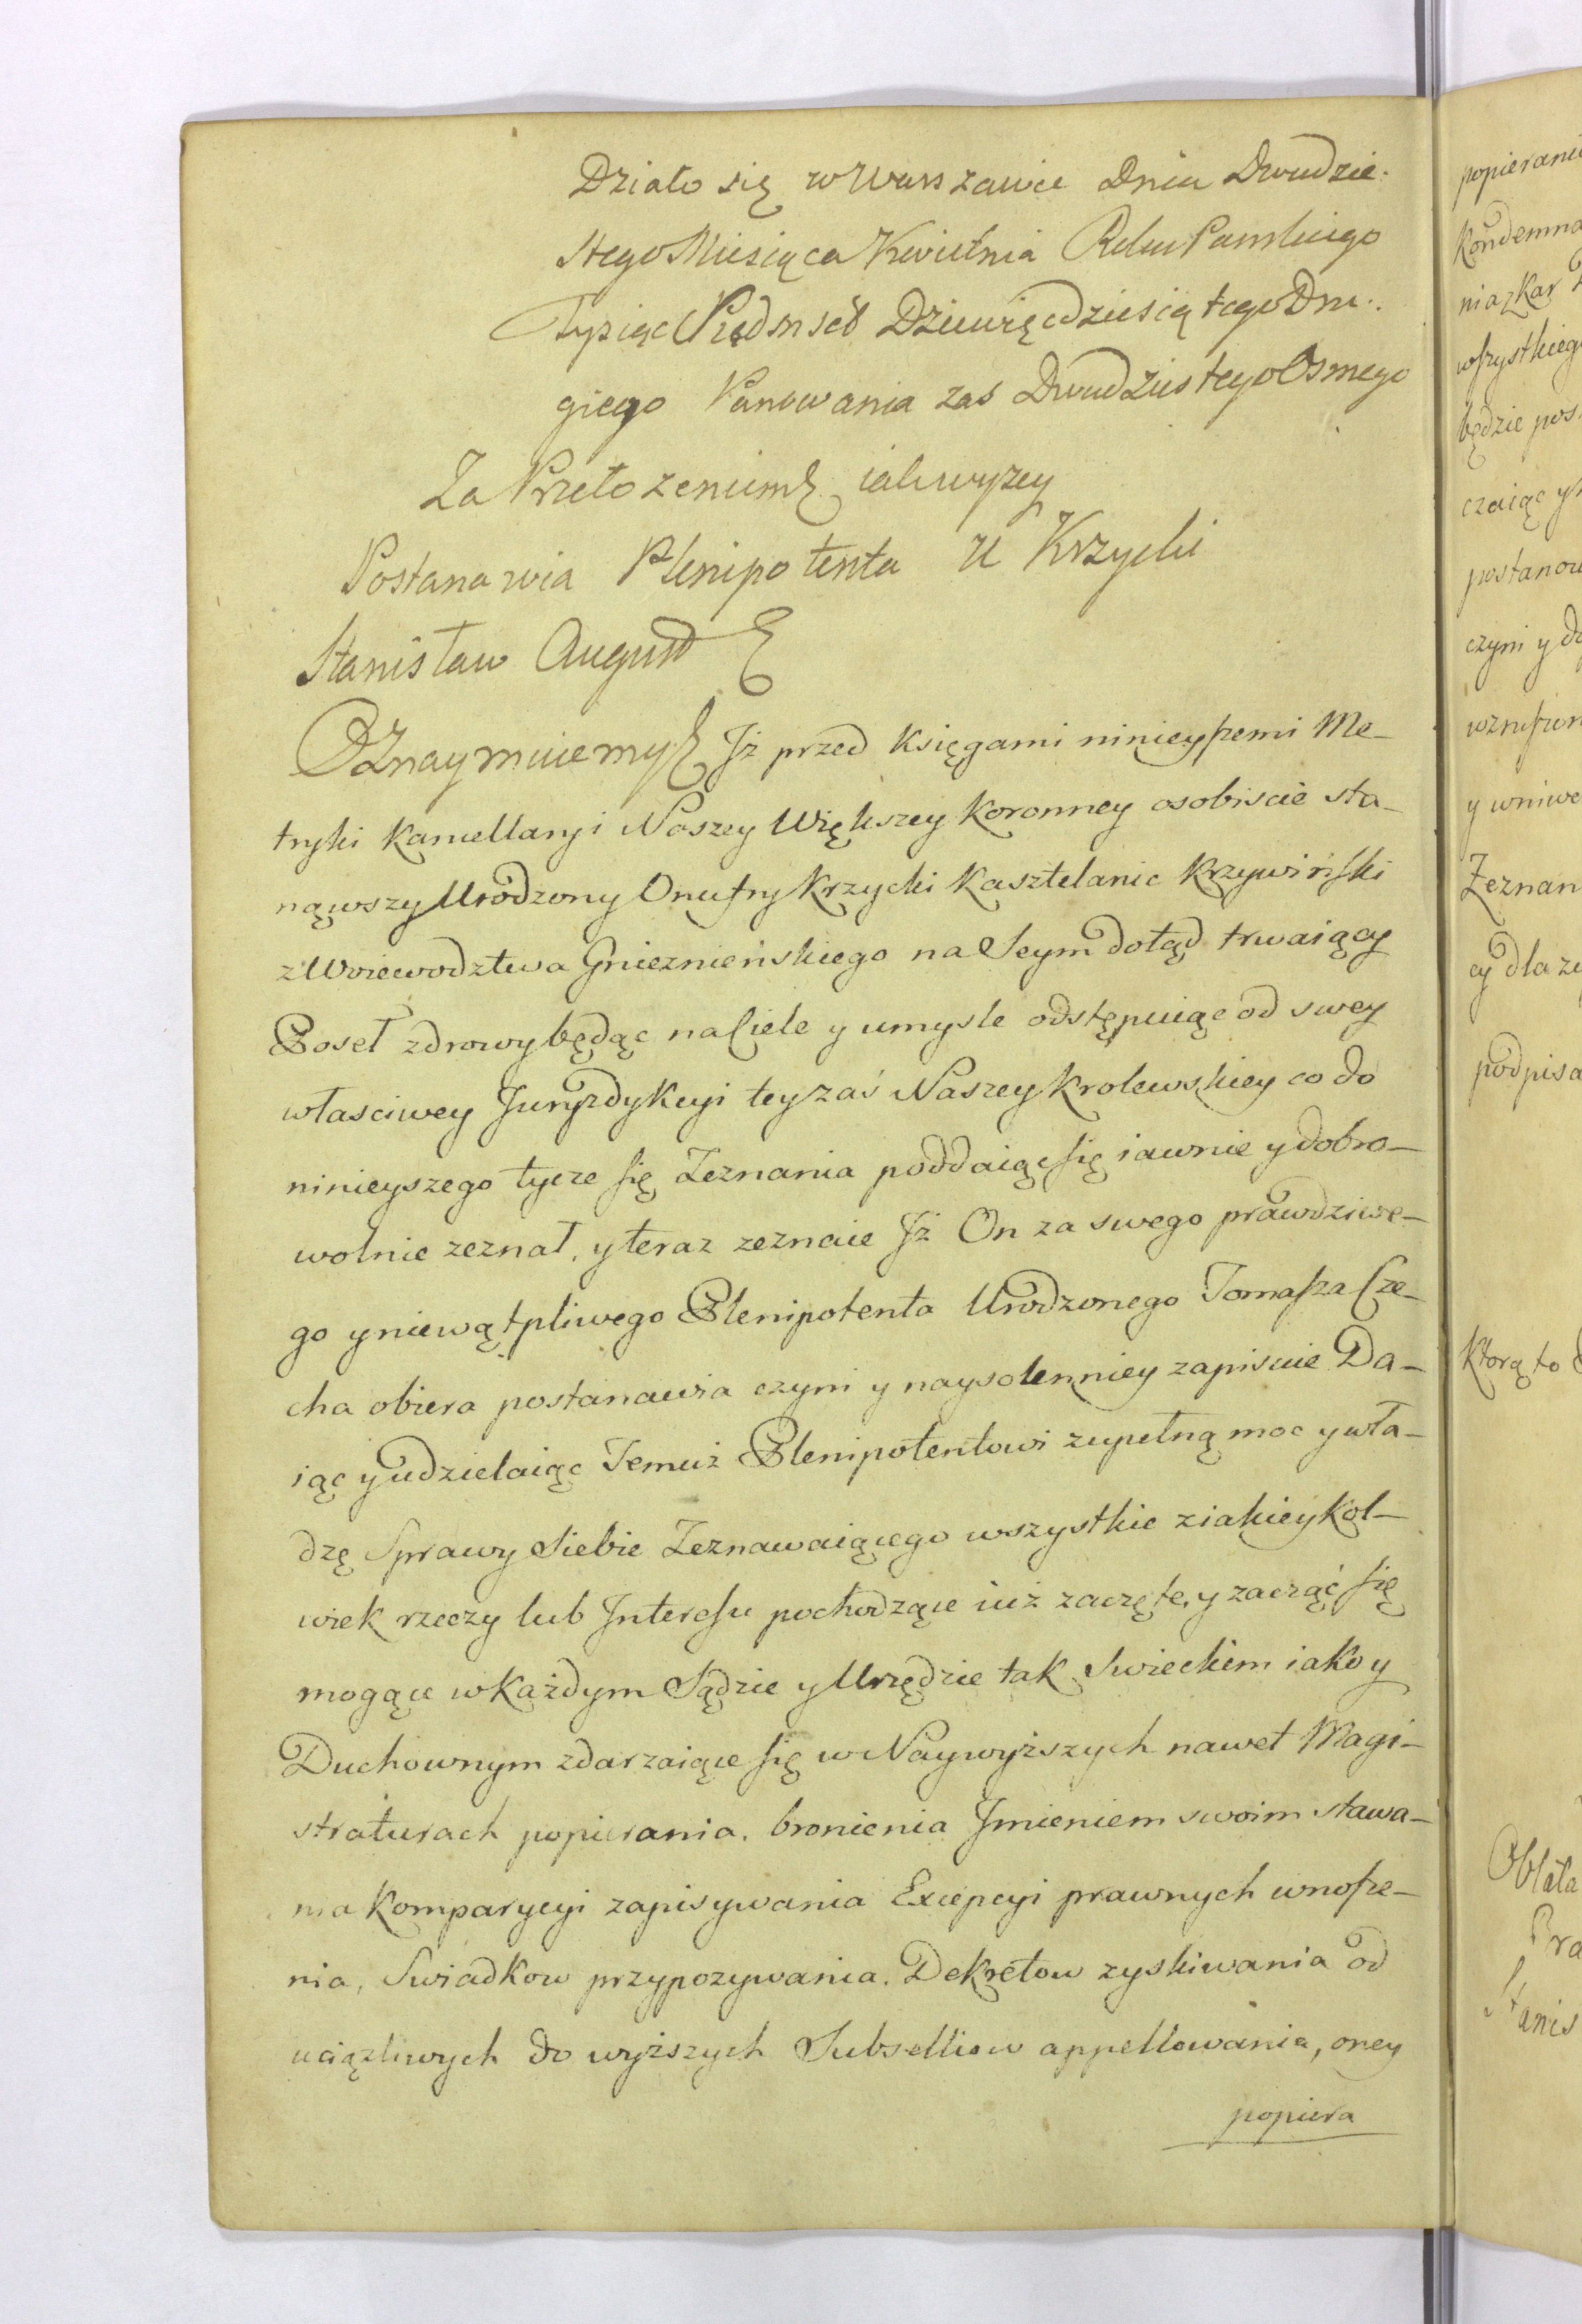 Działo się w Warszawie Dnia Dwudzie.
stego Miesiąca Kwietnia Roku Pańskiego
Tysiąc Siedmset Dziewięćdziesiątego Dru.
giego Panowania zas Dwudziestego Osmego
Za Przełożeniem jak wyżey
Postanawia Plenipotenta U Krzycki
Stanisław August
Oznaymuiemy Jż przed Księgami ninieyszemi Me-
tryki Kancellaryi Naszey Większey Koronney osobiscie sta-
nąwszy Urodzony Onufry Krzycki Kasztelanic Krzywiński
z Woiewodztwa Gnieznieńskiego na Seym dotąd trwaiący
Poseł zdrowy będąc na Ciele y umysle odstępuiąc od swey
własciwey Juryzdykcyi tey zaś Naszey Krolewskiey co do
ninieyszego tycze się Zeznania poddaiąc się iawnie y dobro-
wolnie zeznał, y teraz zeznaie Jż On za swego prawdziwe-
go y niewątpliwego Plenipotenta Urodzonego Tomasza Cze-
cha obiera postanawia czyni y naysolenniey zapisuie Da-
iąc y udzielaiąc Temuż Plenipotentowi zupełną moc y wła-
dzę Sprawy Siebie Zeznawaiącego wszystkie z iakieykol-
wiek rzeczy lub Interesu pochodzące iuż zaczęte, y zacząć się
mogące w każdym Sądzie y Urzędzie tak Swieckim iako y
Duchownym zdarzaiące się w Naywyższych nawet Magi-
straturach popierania, bronienia Jmieniem swoim stawa-
nia Komparycyi zapisywania Excepcyi prawnych wnosze-
nia, Swiadkow przypozywania, Dekretow zyskiwania od
uciążliwych do wyższych Subselliow appellowania, oney
popiera
popierani
Kondemna
nia z kar
wszystkieg
będzie pos
czaiąc y
postanow
czyni y do
wzrusze
y uniwe
Zeznan
cy dla ze
podpisa
Ktorą to
Oblata
Pra
Stanis